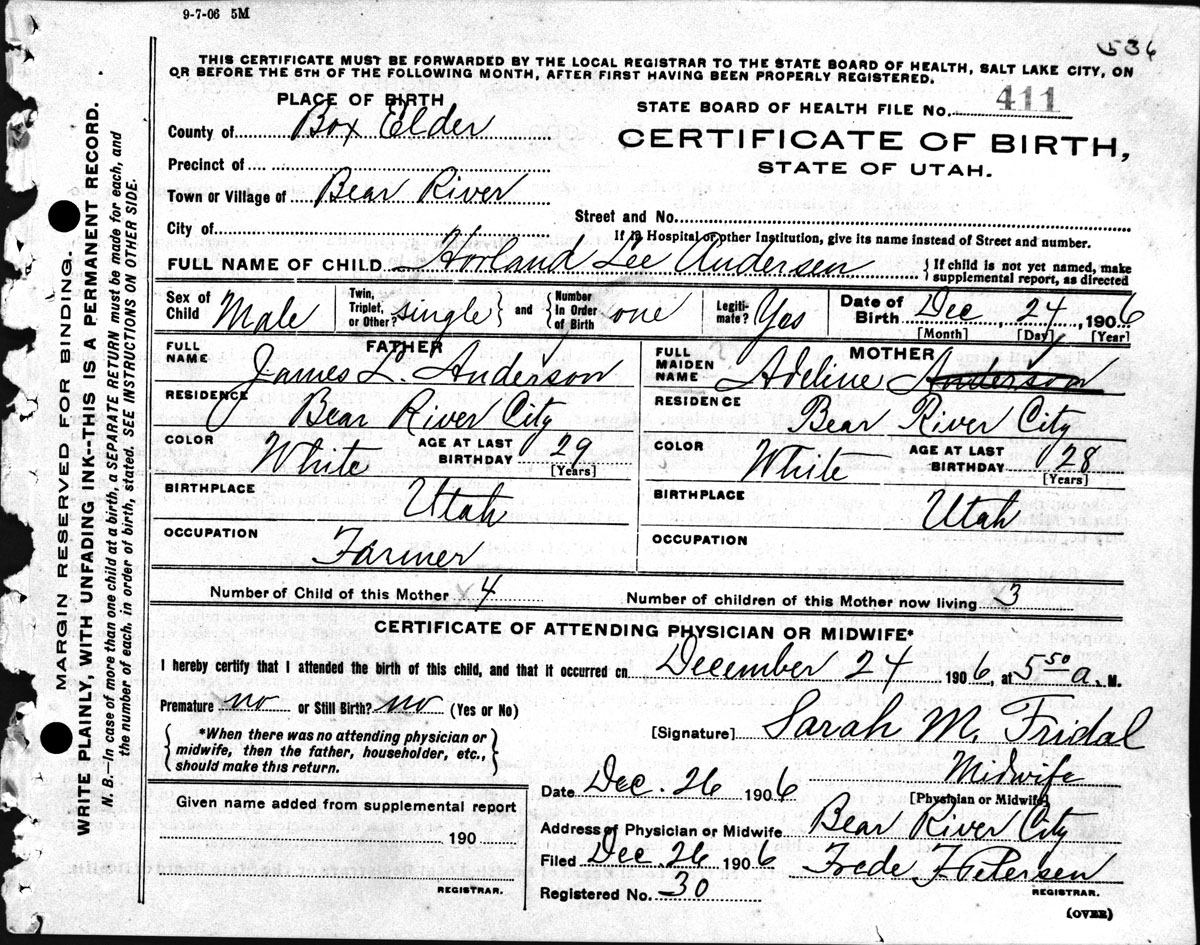 9-7-06 5M
536
THIS CERTIFICATE MUST BE FORWARDED BY THE LOCAL REGISTRAR TO THE STATE BOARD OF HEALTH, SALT LAKE CITY, ON
OR BEFORE THE 5TH OF THE FOLLOWING MONTH, AFTER FIRST HAVING BEEN PROPERLY REGISTERED.
PLACE OF BIRTH
STATE BOARD OF HEALTH FILE No. 411
County of Box Elder
CERTIFICATE OF BIRTH,
STATE OF UTAH.
Precinct of
Town or Village of Bear River
Street and No.
City of
If in Hospital or other Institution, give its name instead of Street and number.
FULL NAME OF CHILD Horland Lee Andersen { If child is not yet named, make supplemental report, as directed
Sex of Child Male Twin, Triplet, or Other? single } and { Number In Order of Birth one Legiti- mate? Yes Date of Birth Dec, 24, 1906
[Month] [Day] [Year]
FATHER
FULL NAME James L. Anderson
RESIDENCE Bear River City
COLOR White AGE AT LAST BIRTHDAY 29 [Years]
BIRTHPLACE Utah
OCCUPATION Farmer
MOTHER
FULL MAIDEN NAME Adeline Anderson
RESIDENCE Bear River City
COLOR White AGE AT LAST BIRTHDAY 28 [Years]
BIRTHPLACE Utah
OCCUPATION
Number of Child of this Mother 4 Number of children of this Mother now living 3
CERTIFICATE OF ATTENDING PHYSICIAN OR MIDWIFE*
I hereby certify that I attended the birth of this child, and that it occurred on December 24 1906, at 5 50 a. M.
Premature no or Still Birth? no (Yes or No)
{ *When there was no attending physician or
midwife, then the father, householder, etc.,
should make this return. }
[Signature] Sarah M. Fridal
Midwife
[Physician or Midwife]
Date Dec. 26 1906
Given name added from supplemental report
190
REGISTRAR.
Address of Physician or Midwife Bear River City
Filed Dec. 26 1906 Frede F. Petersen
REGISTRAR.
Registered No. 30
(OVER)
MARGIN RESERVED FOR BINDING.
WRITE PLAINLY, WITH UNFADING INK--THIS IS A PERMANENT RECORD.
N. B.—In case of more than one child at a birth, a SEPARATE RETURN must be made for each, and
the number of each, in order of birth, stated. SEE INSTRUCTIONS ON OTHER SIDE.